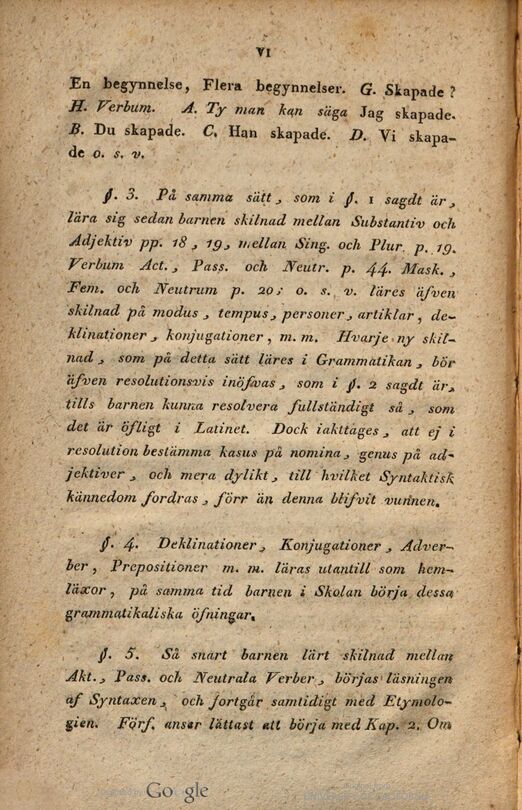 VI
En begynnelse, Flera begynnelser. G. Skapade?
H. Verbum. A. Ty man kan säga Jag skapade.
B. Du skapade. C. Han skapade. D. Vi skapa-
de o. s. v.
§. 3. På samma sätt, som i §. 1 sagdt är,
lära sig sedan barnen skilnad mellan Substantiv och
Adjektiv pp. 18, 19, mellan Sing. och Plur. p. 19.
Verbum Act., Pass. och Neutr. p. 44. Mask.,
Fem. och Neutrum p. 20; o. s. v. läres äfven
skilnad på modus, tempus, personer, artiklar, de-
klinationer, konjugationer, m. m. Hvarje ny skil-
nad, som på detta sätt läres i Grammatikan, bör
äfven resolutionsvis inöfvas, som i §. 2 sagdt är,
tills barnen kunna resolvera fullständigt så, som
det är öfligt i Latinet. Dock iakttages, att ej i
resolution bestämma kasus på nomina, genus på ad-
jektiver, och mera dylikt, till hvilket Syntaktisk
kännedom fordras, förr än denna blifvit vunnen.
§. 4. Deklinationer, Konjugationer, Adver-
ber, Prepositioner m. m. läras utantill som hem-
läxor, på samma tid barnen i Skolan börja dessa
grammatikaliska öfningar.
§. 5. Så snart barnen lärt skilnad mellan
Akt., Pass. och Neutrala Verber, börjas läsningen
af Syntaxen, och fortgår samtidigt med Etymolo-
gien. Förf. anser lättast att börja med Kap. 2. Om
Google